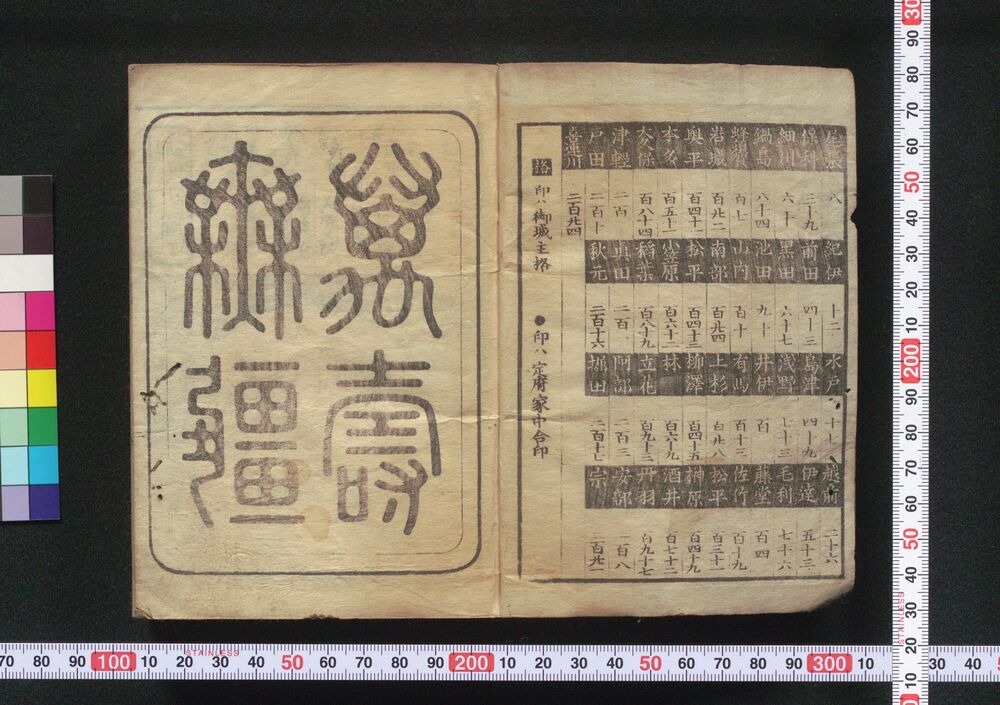 尾張 八 紀伊 十二 水戸 十七 越前 二十六
保科 三十九 前田 四十三 島津 四十九 伊達 五十三
細川 六十 黒田 六十七 浅野 七十三 毛利 七十六
鍋島 八十四 池田 九十 井伊 百 藤堂 百四
蜂須賀 百七 山内 百十 有馬 百十三 佐竹 百十九
岩城 百廿二 南部 百廿四 上杉 百廿八 松平 百三十一
奥平 百四十一 松平 百四十三 柳澤 百四十五 榊原 百四十九
本多 百五十一 小笠原 百六十二 林 百六十九 酒井 百七十二
大久保 百八十四 稲葉 百八十九 立花 百九十三 丹羽 百九十七
津輕 二百 眞田 二百 阿部 二百三 安部 二百八
戸田 二百十 秋元 二百十六 堀田 二百十七 宗 二百廿一
喜連川 二百廿四
格 印ハ御城主格 ●印ハ定府家中合印
萬壽
無疆